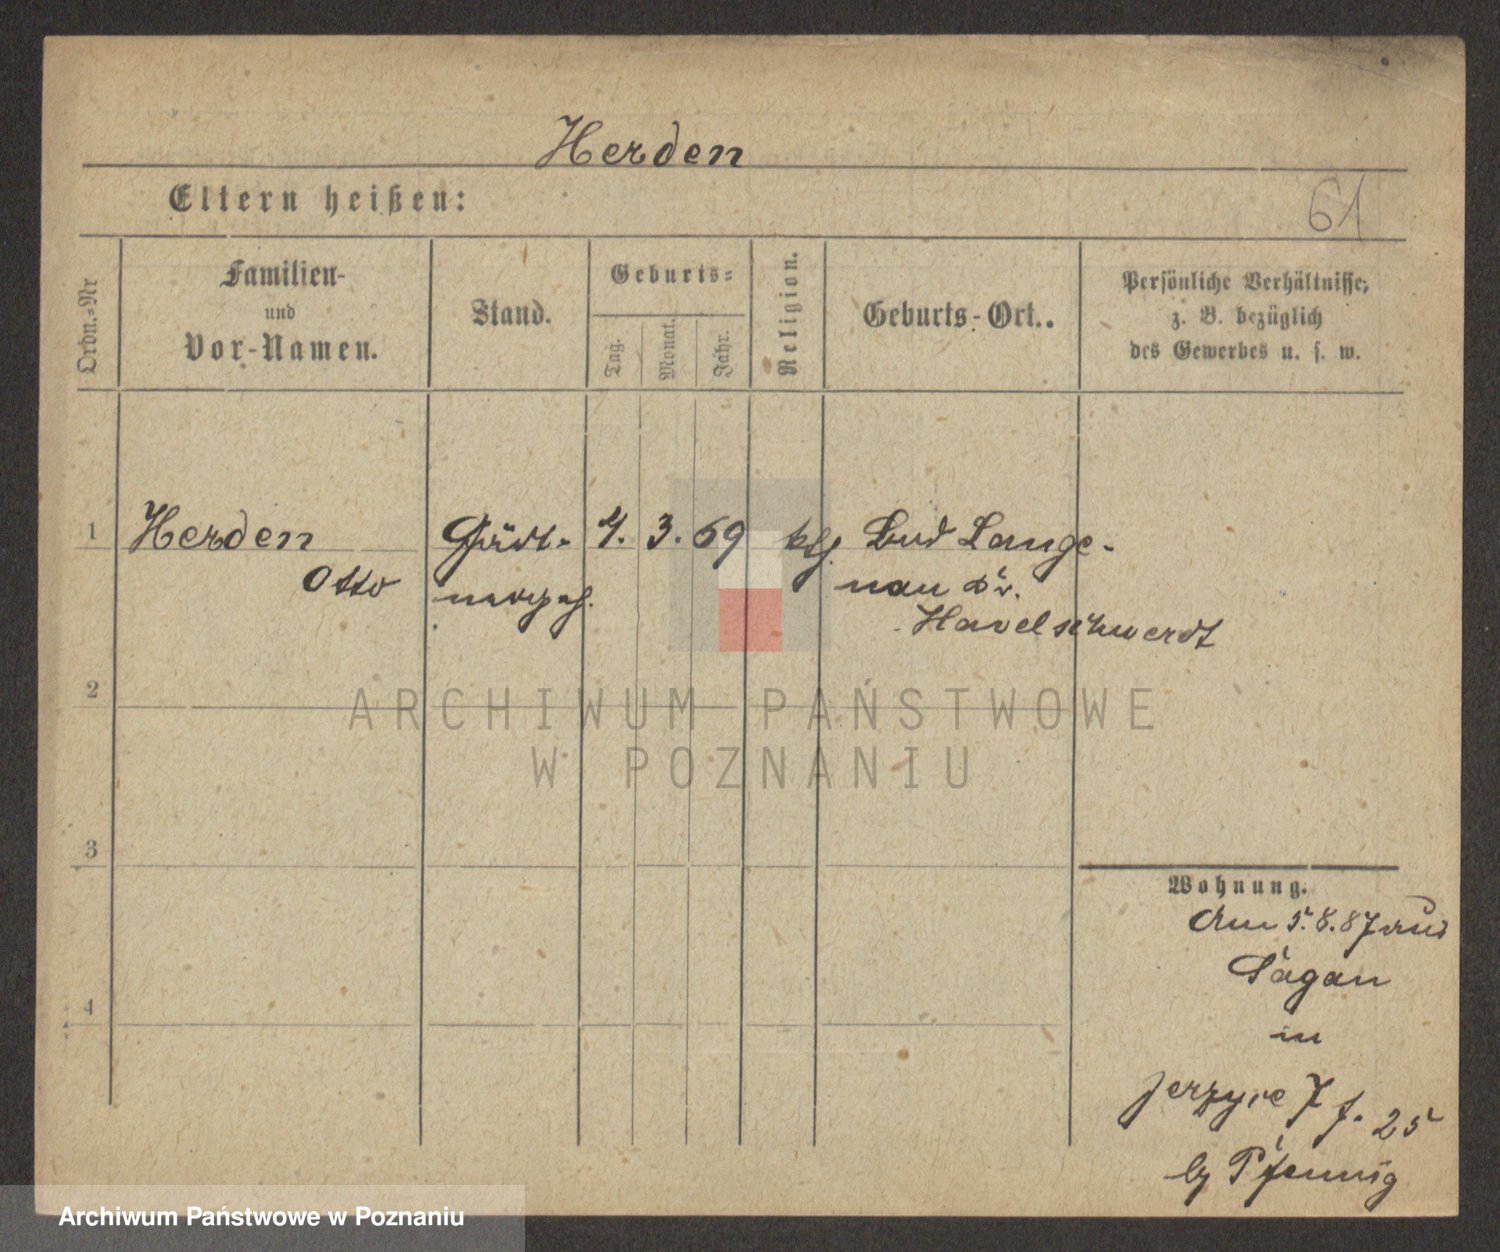 Herden
Eltern heißen:
61
Ordn.-Nr
Familien-
und
Vor-Namen.
Stand.
Geburts-
Tag.
Monat.
Jahr.
Religion.
Geburts-Ort.
Persönliche Verhältnisse,
z. B. bezüglich
des Gewerbes u. s. w.
1
Herden
Otto
Gärt-
nergeh.
4. 3. 69
kth.
Bad Lange-
nau Kr.
Havelschwerdt
2
3
4
Wohnung.
Am 5.8.87 aus
Sagan
in
25
by Pfennig
ARCHIWUM PAŃSTWOWE
W POZNANIU
Archiwum Państwowe w Poznaniu